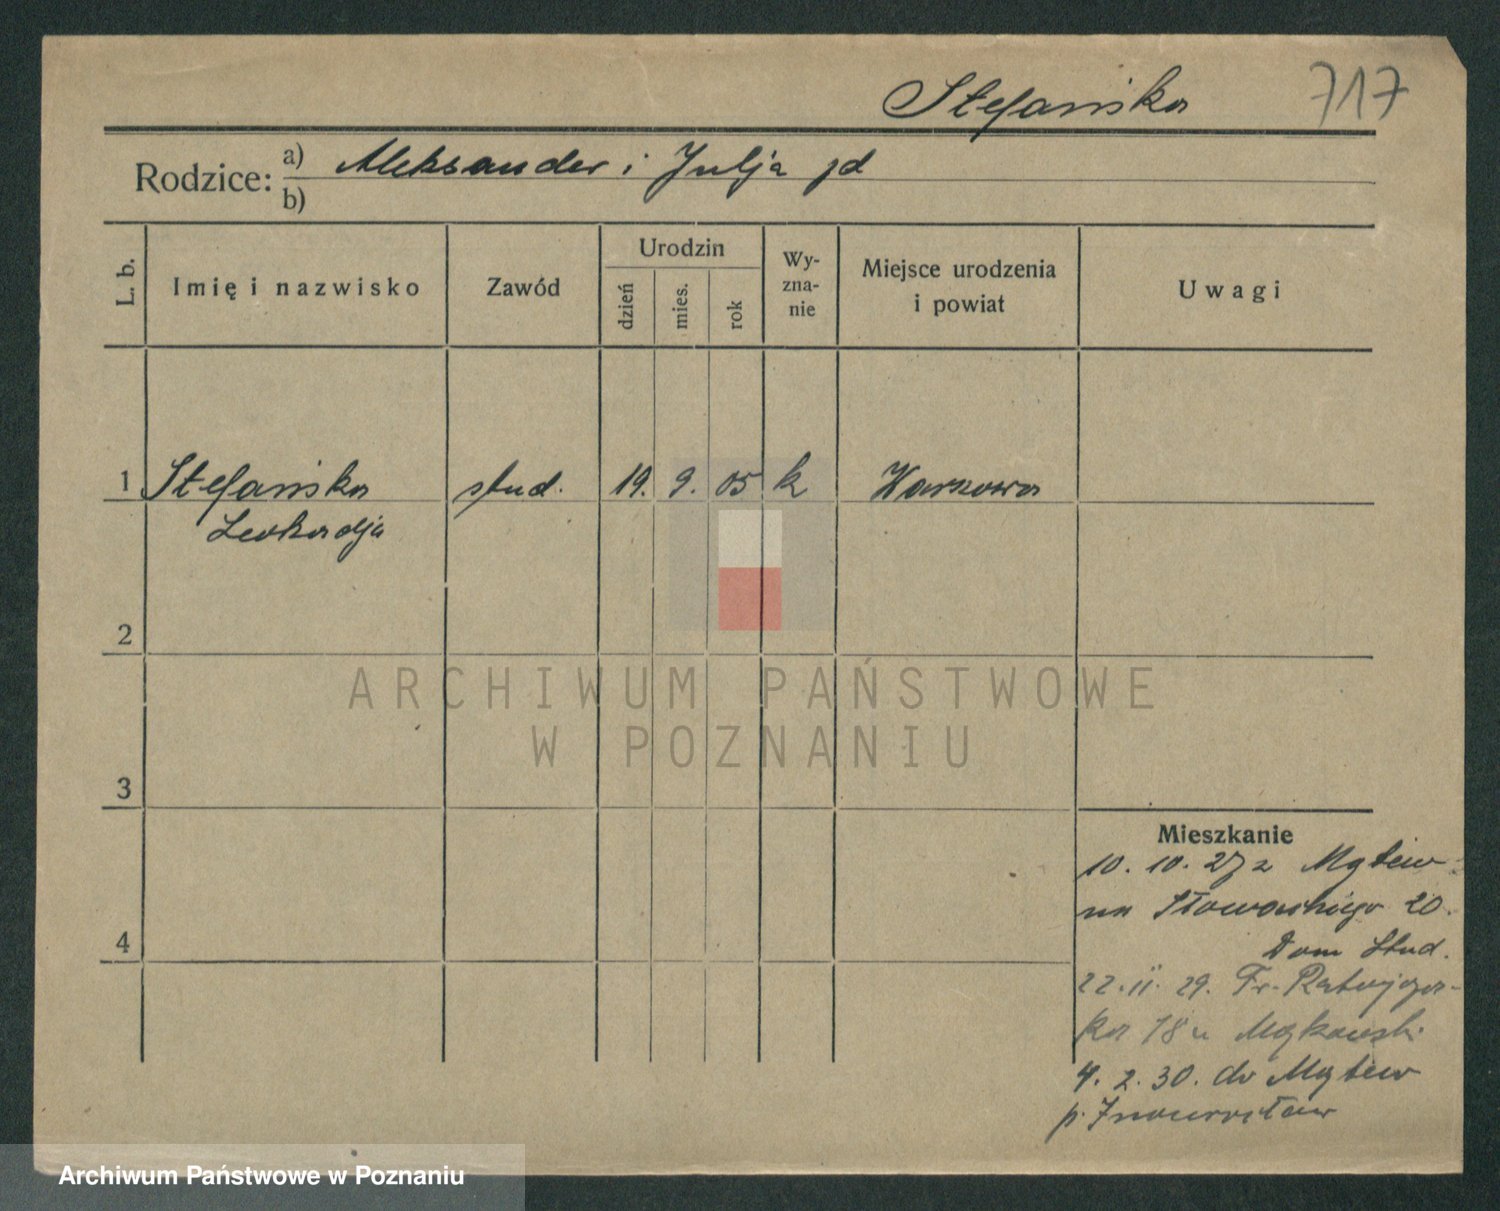 Stefańska 717
Rodzice: a) Aleksander i Julja jd
b)
L. b. Imię i nazwisko Zawód Urodzin dzień mies. rok Wy-zna-nie Miejsce urodzenia i powiat Uwagi
1 Stefańska stud. 19. 9. 05 k Warszawa
Leokadja
2
ARCHIWUM PAŃSTWOWE
W POZNANIU
3
Mieszkanie
10. 10. 27 z Mątew
na Słowackiego 20.
4
Dom Stud.
22. 11. 29. Fr. Ratajcza-
ka 18 u Mąkowski
4. 2. 30. do Mątew
p. Inowrocław
Archiwum Państwowe w Poznaniu